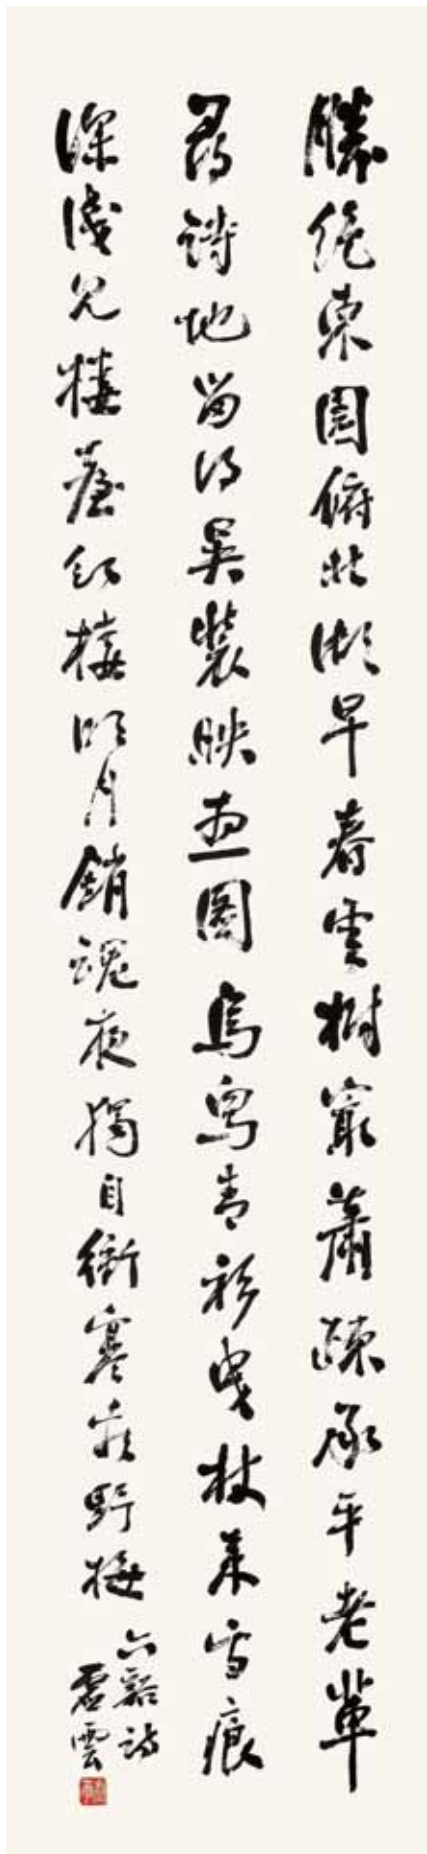 勝絕東園俯北湖早春雲樹最蕭疎承平老輩
尋詩地留得吳裝映畫圖烏舄青衫曳杖來雪痕
深淺見樓臺紅樓明月銷魂夜獨自衝寒看野梅
六谿詩
雲